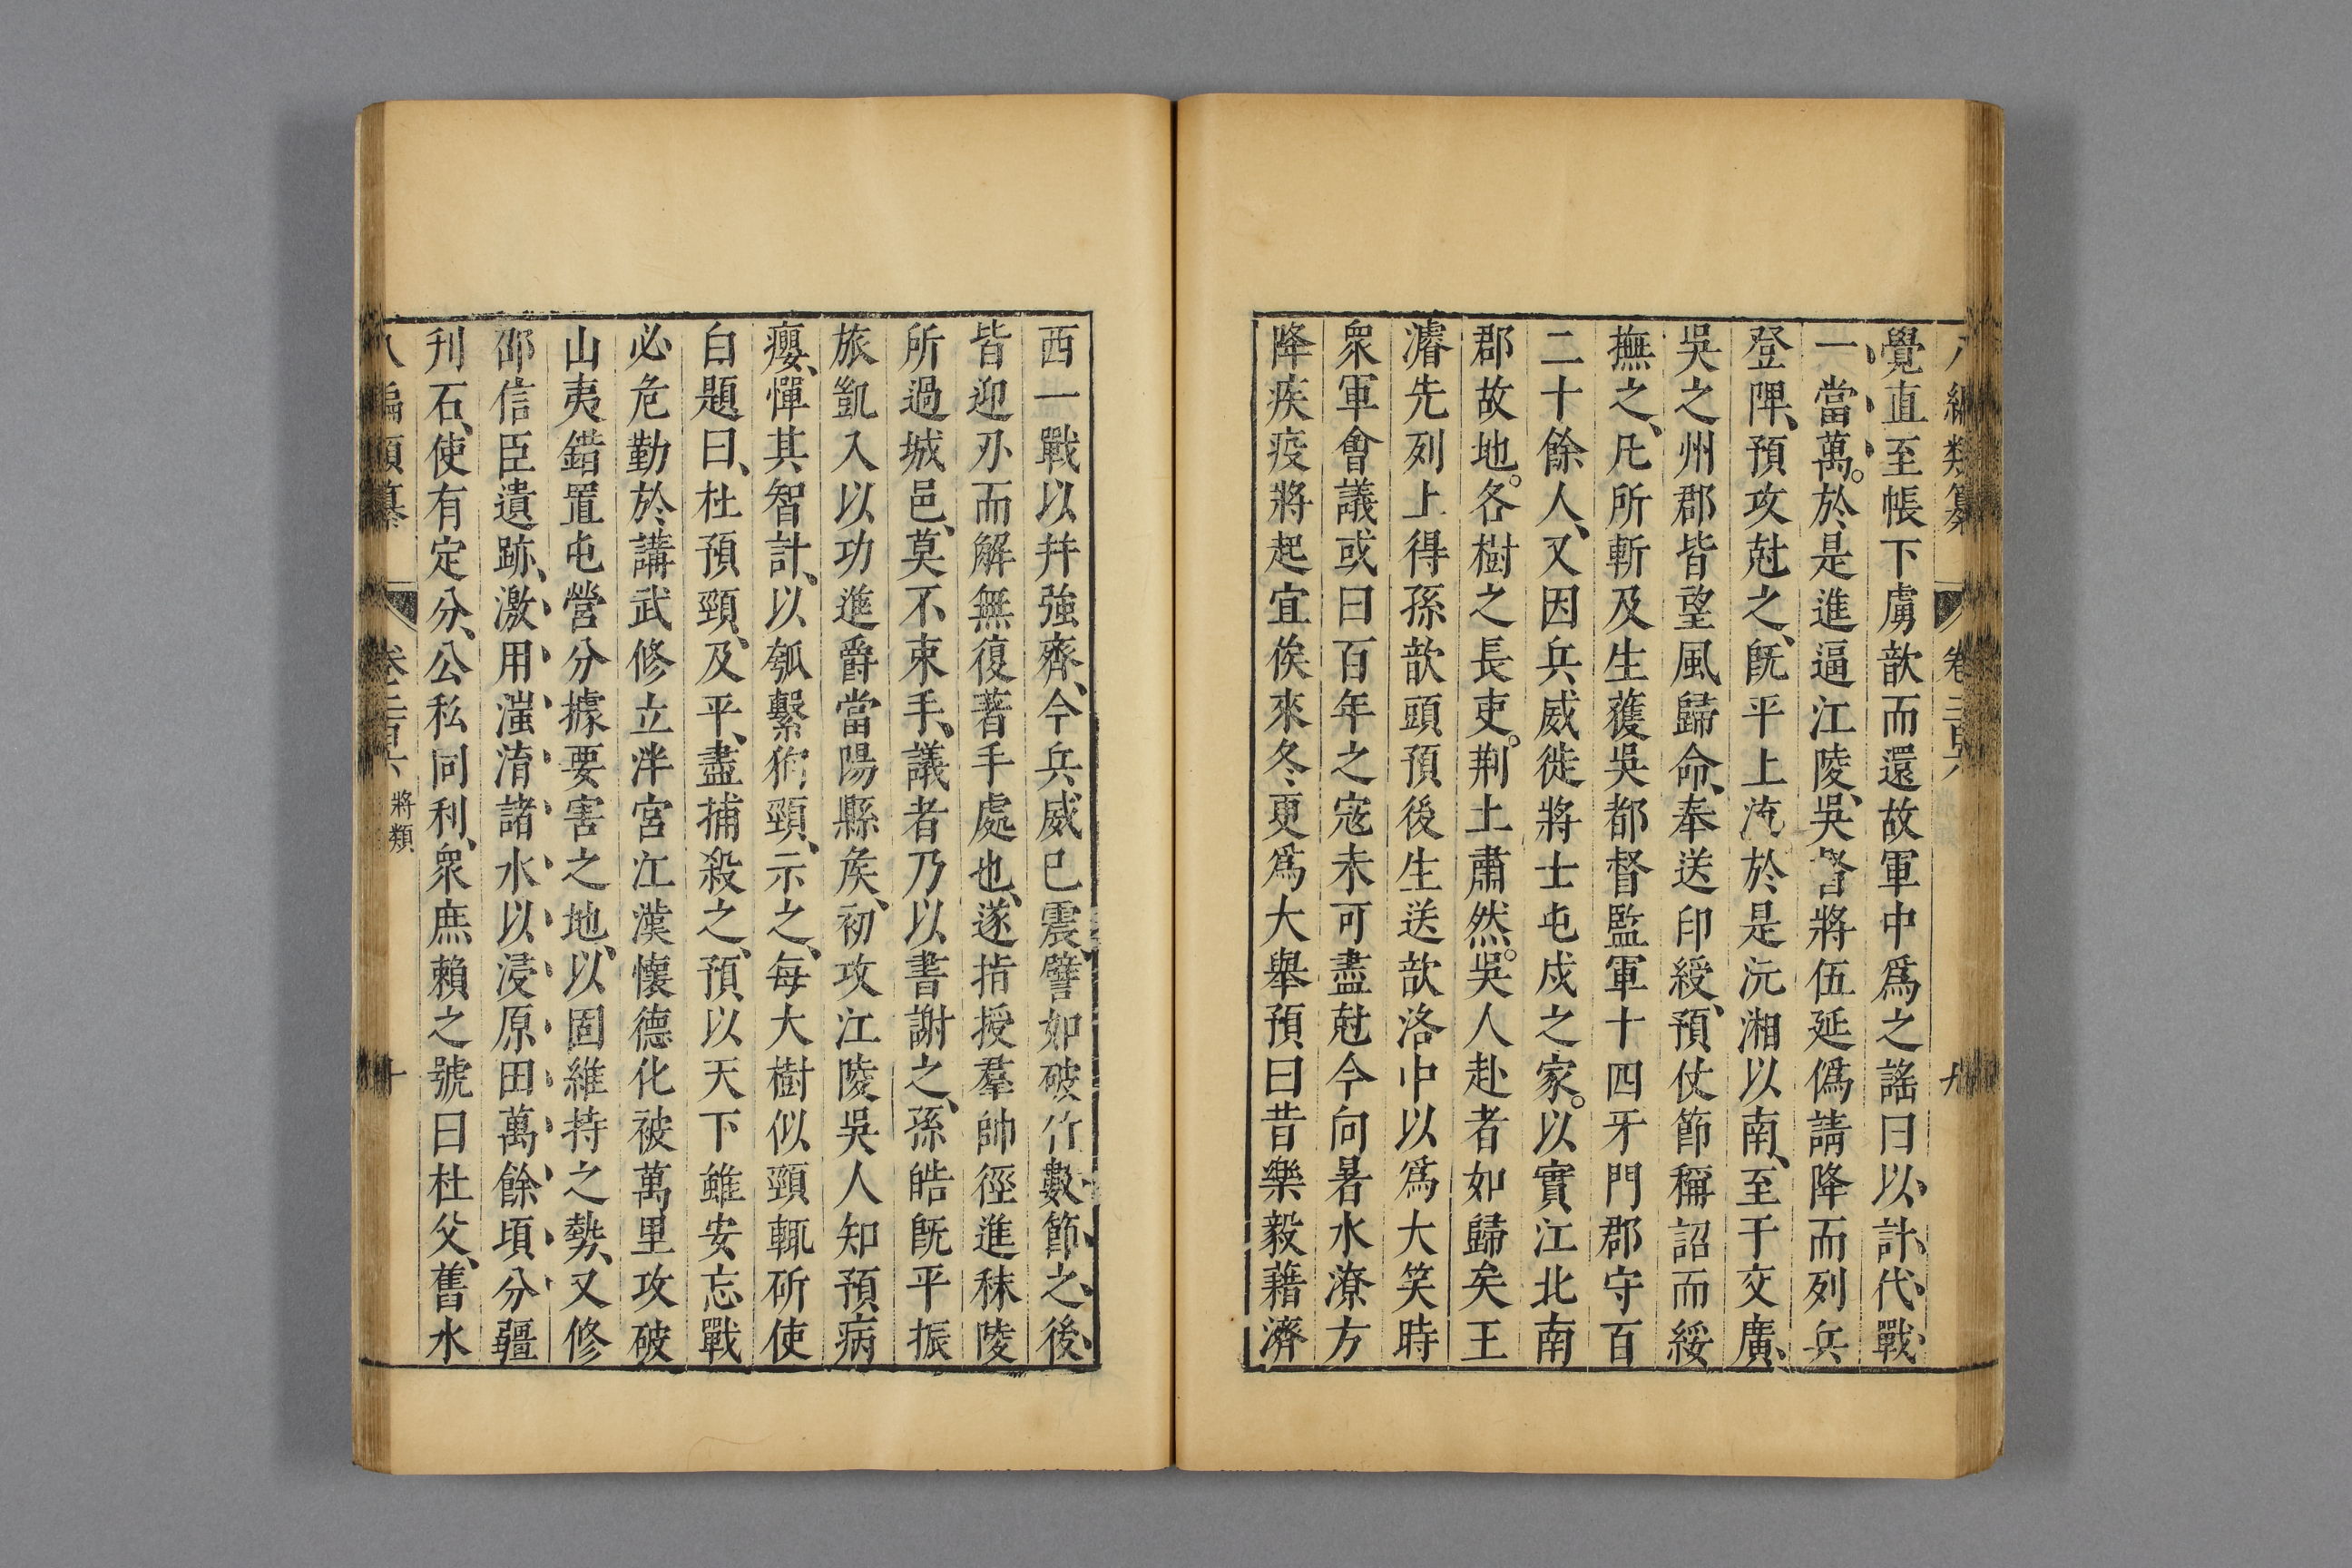 八編類纂 卷二百六 九
覺直至帳下虜歆而還故軍中爲之謠曰以計代戰
一當萬。於是進逼江陵、吳督將伍延僞請降而列兵
登陴、預攻尅之、旣平上流於是沅湘以南、至于交廣、
吳之州郡皆望風歸命、奉送印綬、預仗節稱詔而綏
撫之、凡所斬及生獲吳都督監軍十四牙門郡守百
二十餘人、又因兵威徙將士屯戍之家。以實江北南
郡故地。各樹之長吏。荆土肅然。吳人赴者如歸矣王
濬先列上得孫歆頭預後生送歆洛中以爲大笑時
衆軍會議或曰百年之寇未可盡尅今向暑水潦方
降疾疫將起宜俟來冬更爲大舉預曰昔樂毅藉濟
西一戰以幷強齊、今兵威已震、譬如破竹數節之後、
皆迎刃而解無復著手處也、遂指授羣帥徑進秣陵
所過城邑、莫不束手、議者乃以書謝之、孫皓旣平振
旅凱入以功進爵當陽縣矦、初攻江陵吳人知預病
癭、憚其智計、以瓠繫狗頸、示之、每大樹似頸輒斫使
白題曰、杜預頸、及平、盡捕殺之、預以天下雖安忘戰
必危勤於講武修立泮宮江漢懷德化被萬里攻破
山夷錯置屯營分據要害之地、以固維持之勢、又修
邵信臣遺跡、激用滍淯諸水以浸原田萬餘頃、分疆
刋石、使有定分、公私同利、衆庶賴之號曰杜父、舊水
八編類纂 卷二百六 將類 十